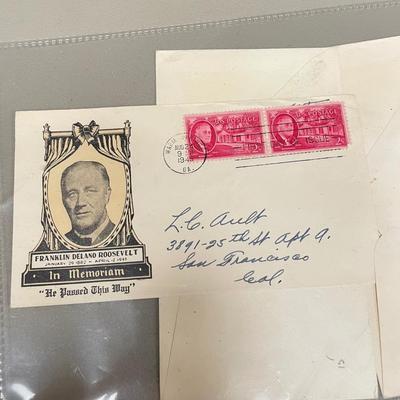 FRANKLIN DELANO ROOSEVELT
JANUARY 30 1882 - APRIL 12 1945
In Memoriam
"He Passed This Way"
AUG 24
GA.
U.S. POSTAGE
U.S. POSTAGE
L.C. Ault
3891-25th St Apt 9.
San Francisco
Cal.